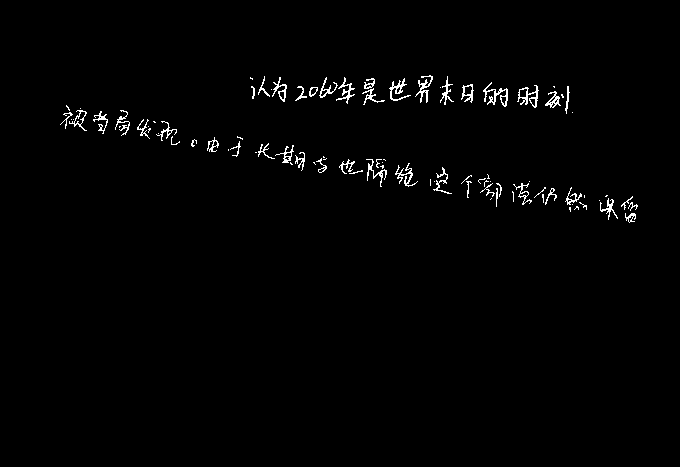 认为2060年是世界末日的时刻
被当局发现。由于长期与世隔绝这个部落仍然保留